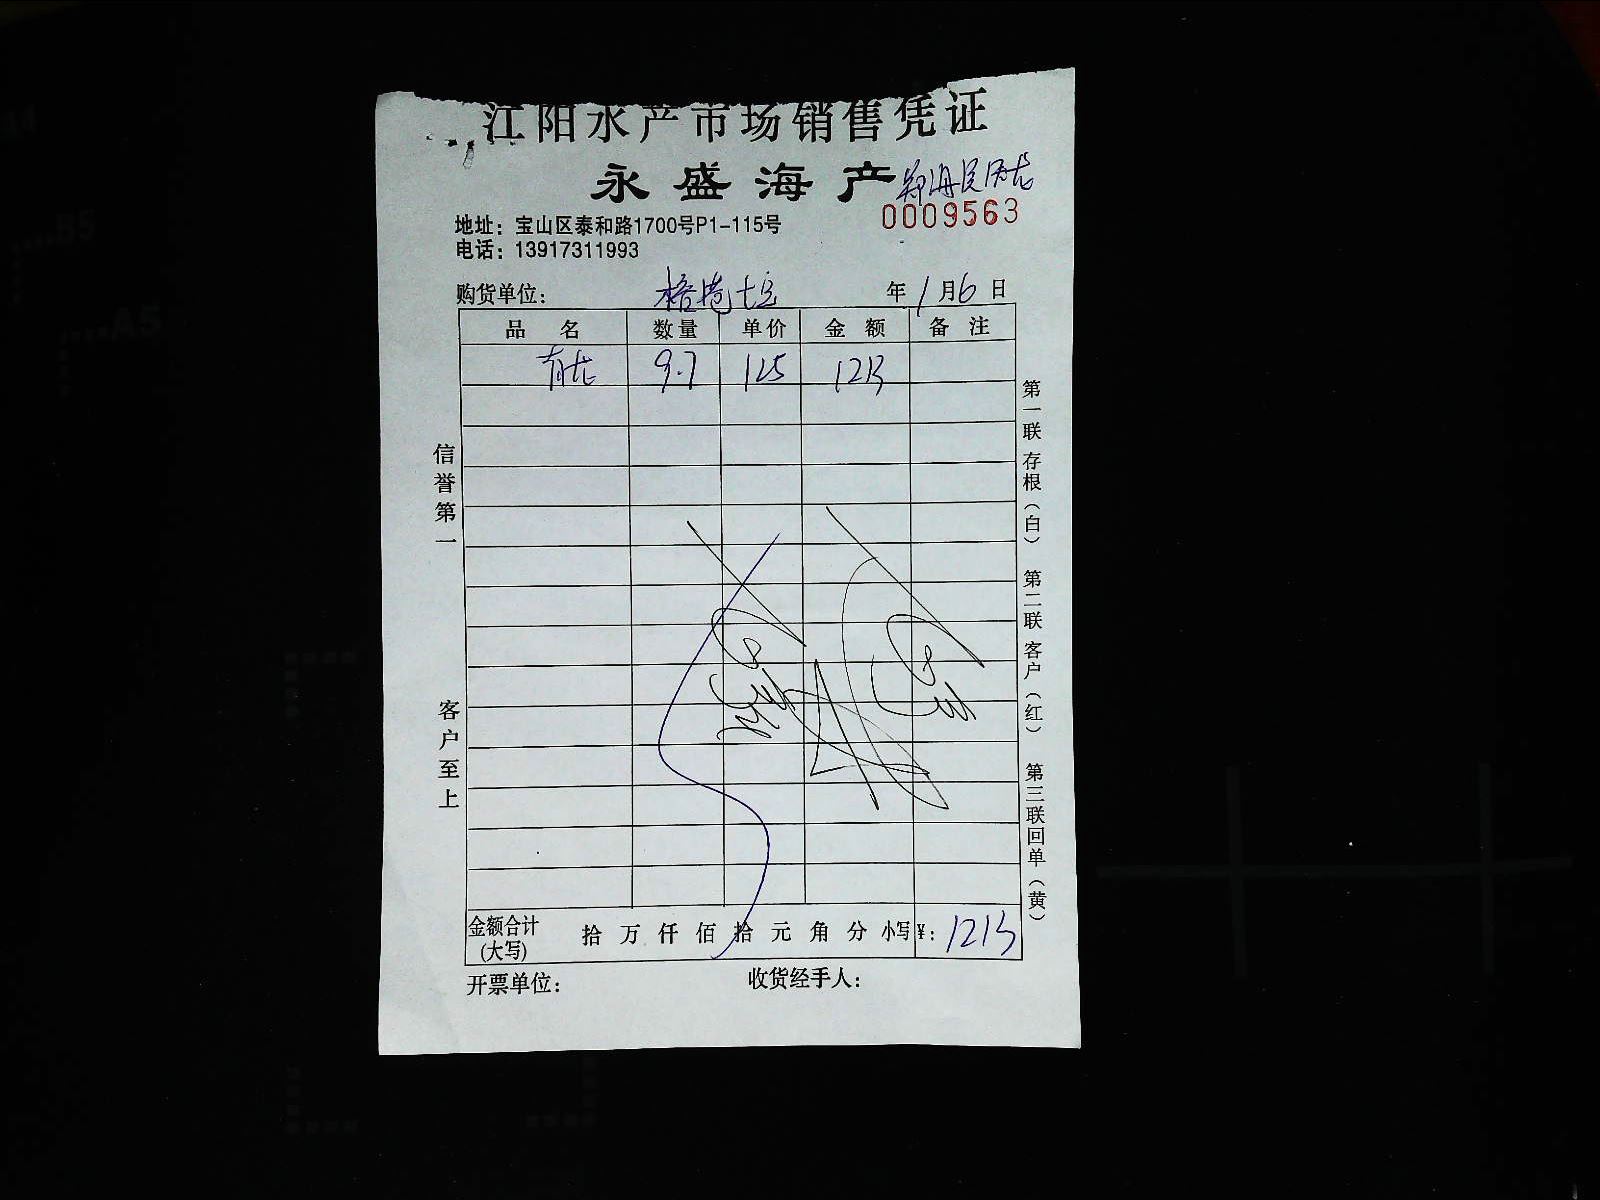 江阳水产市场销售凭证
永盛海产
0009563
地址：宝山区泰和路1700号P1-115号
电话：13917311993
购货单位： 年1月6日
品名 数量 单价 金额 备注
9.7 125 1213
信誉第一 客户至上
第一联 存根（白） 第二联 客户（红） 第三联 回单（黄）
金额合计(大写) 拾 万 仟 佰 拾 元 角 分 小写¥：1213
开票单位： 收货经手人：